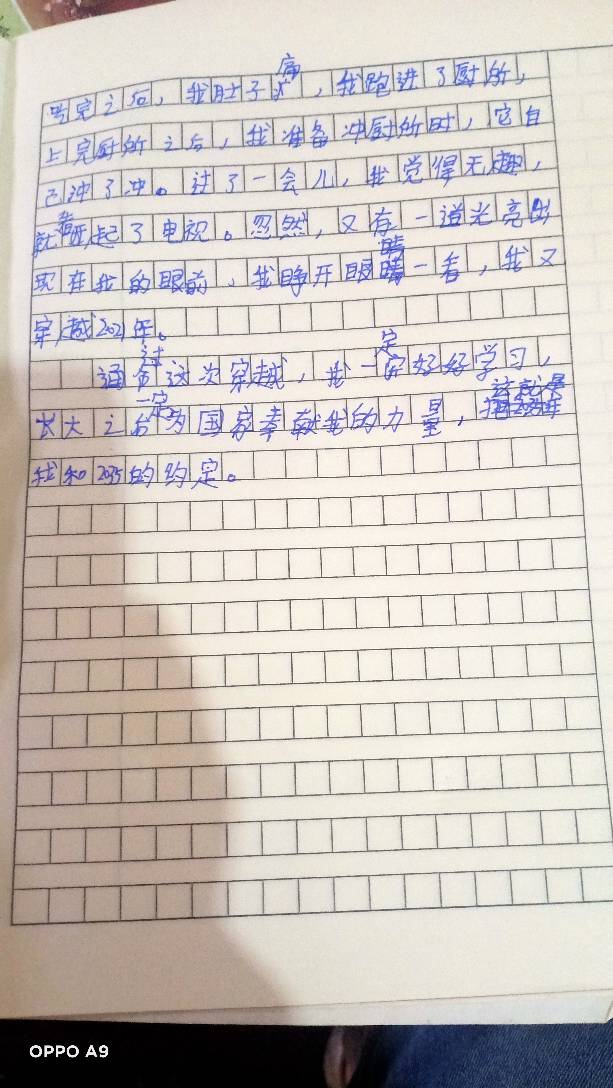 完之后，我肚子痛，我跑进了厨所，
上完厨所之后，我准备冲厨所时，它自
己冲了冲。过了一会儿，我觉得无趣，
就看起了电视。忽然，又有一道光亮出
现在我的眼前，我睁开眼睛一看，我又
穿越2021年。
通过这次穿越，我一定好好学习，
长大之后一定为国家奉献我的力量，这就是
我和2035的约定。
OPPO A9